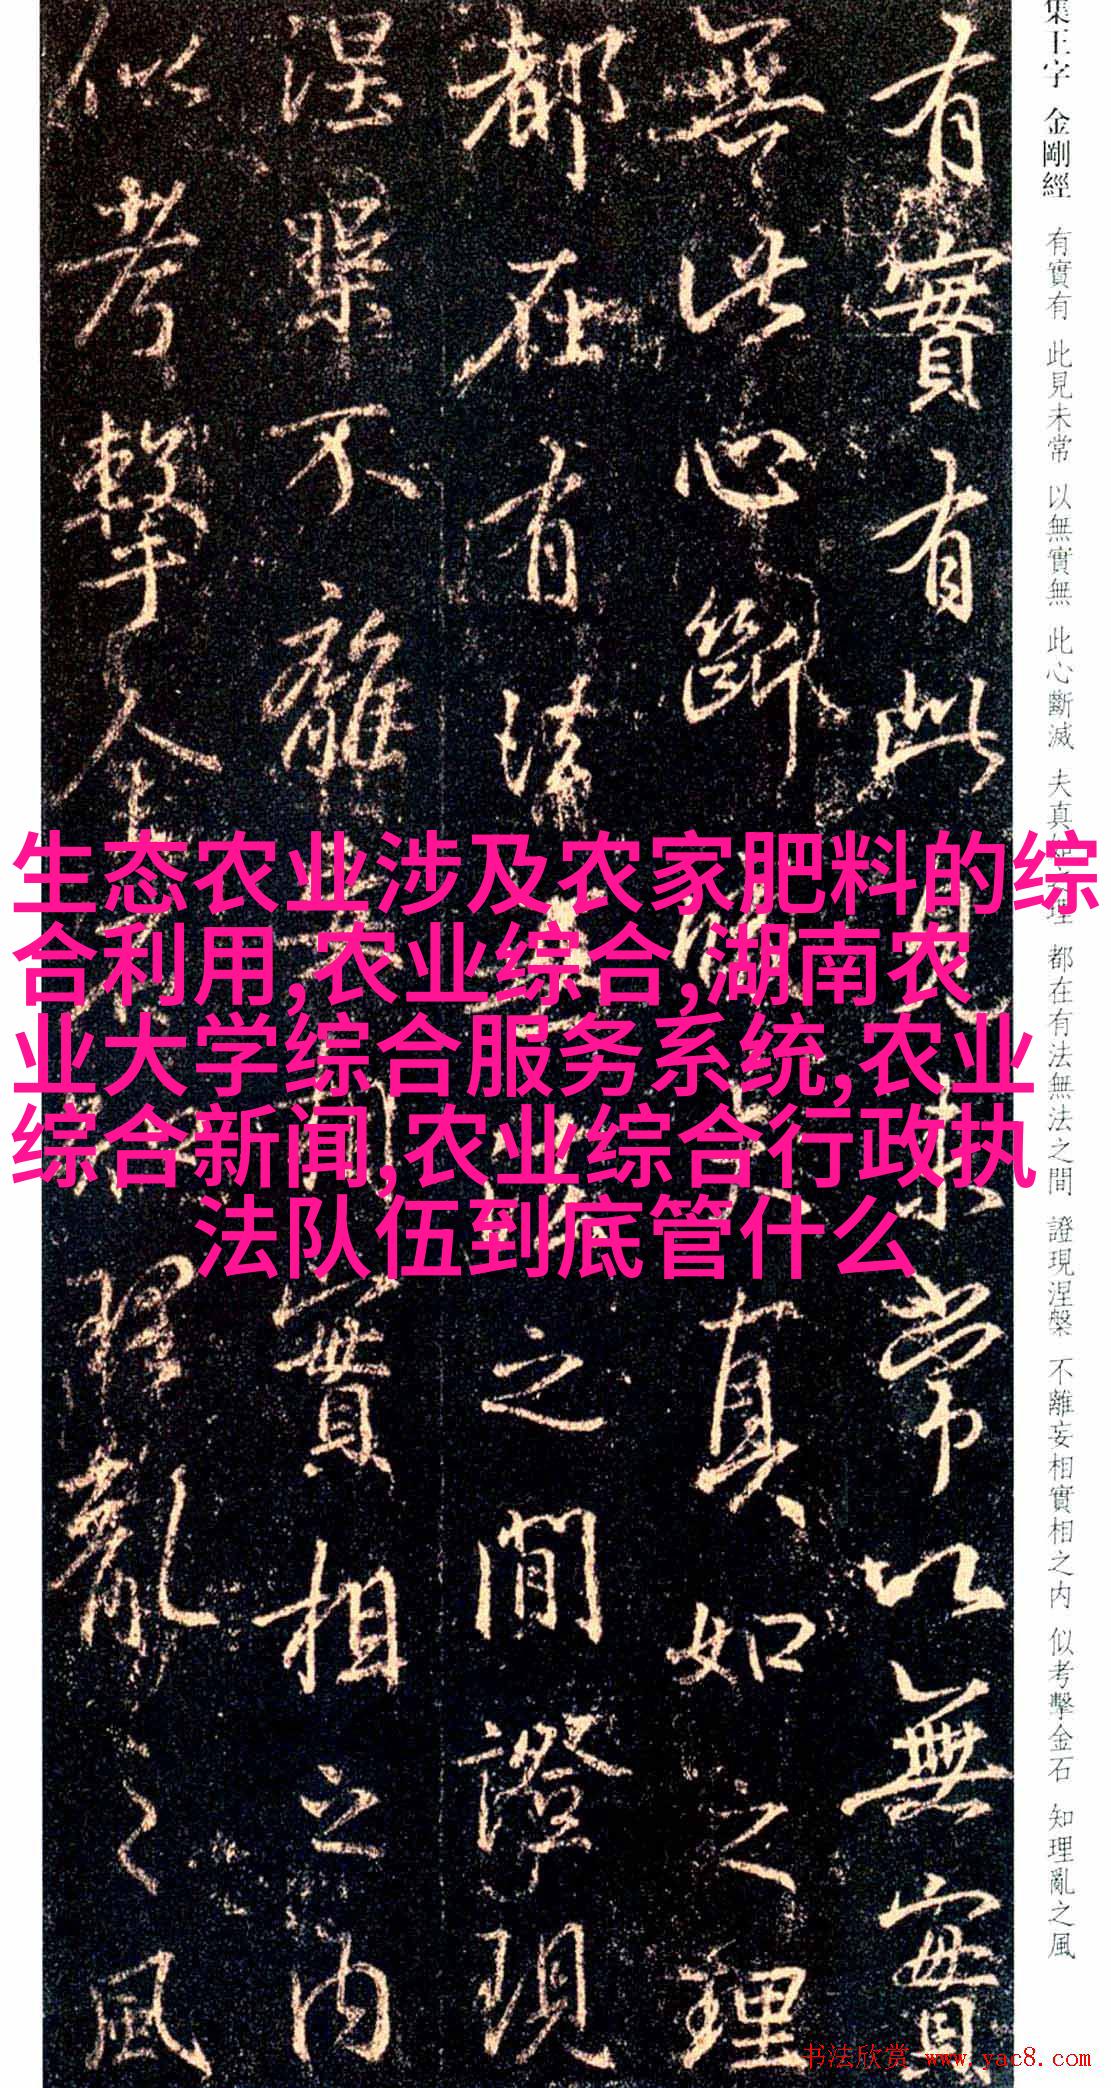 集王字 金剛經 有實有 此見未常 以無實無 此心斷滅 夫真如之理 都在有法無法之間 證現涅槃 不離妄相實相之内 似考擊金石 知理亂之風
有實有此見未常以無實
無此心斷滅夫真如之理
都在有法無法之間證現
涅槃不離妄相實相之内
似考擊金石知理亂之風
生态农业涉及农家肥料的综
合利用,农业综合,湖南农
业大学综合服务系统,农业
综合新闻,农业综合行政执
法队伍到底管什么
书法欣赏 www.yac8.com